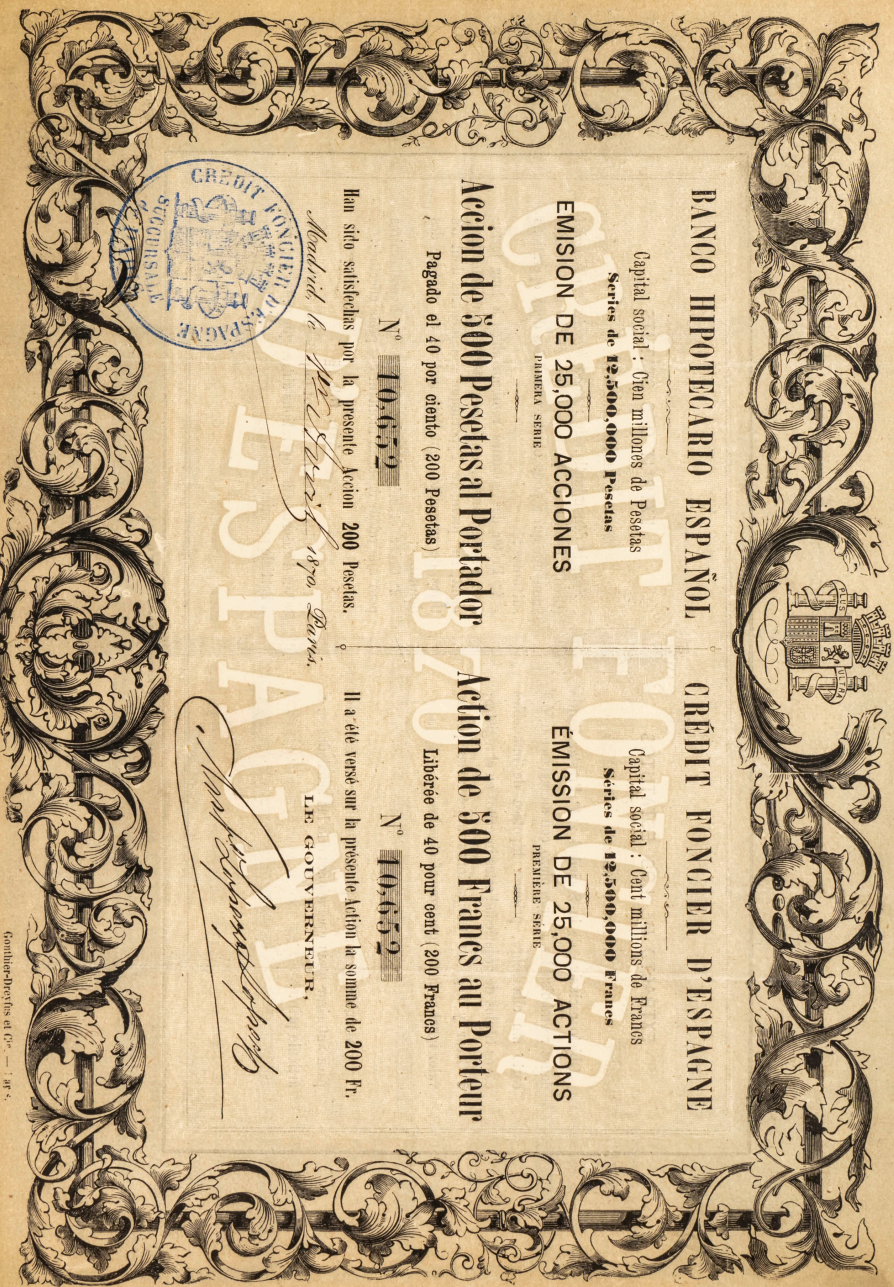 PLUS ULTRA
BANCO HIPOTECARIO ESPAÑOL
Capital social : Cien millones de Pesetas
Series de 12,500,000 Pesetas
EMISION DE 25,000 ACCIONES
PRIMERA SERIE
Accion de 500 Pesetas al Portador
Pagado el 40 por ciento (200 Pesetas)
N° 10,652
Han sido satisfechas por la presente Accion 200 Pesetas.
Madrid, le 1870 Paris.
CRÉDIT FONCIER D'ESPAGNE
SUCCURSALE
CRÉDIT FONCIER D'ESPAGNE
Capital social : Cent millions de Francs
Séries de 12,500,000 Francs
ÉMISSION DE 25,000 ACTIONS
PREMIÈRE SÉRIE
Action de 500 Francs au Porteur
Libérée de 40 pour cent (200 Francs)
N° 10,652
Il a été versé sur la présente Action la somme de 200 Fr.
LE GOUVERNEUR,
CRÉDIT FONCIER
1870
D'ESPAGNE
Gonthier-Dreyfus et Cie. —